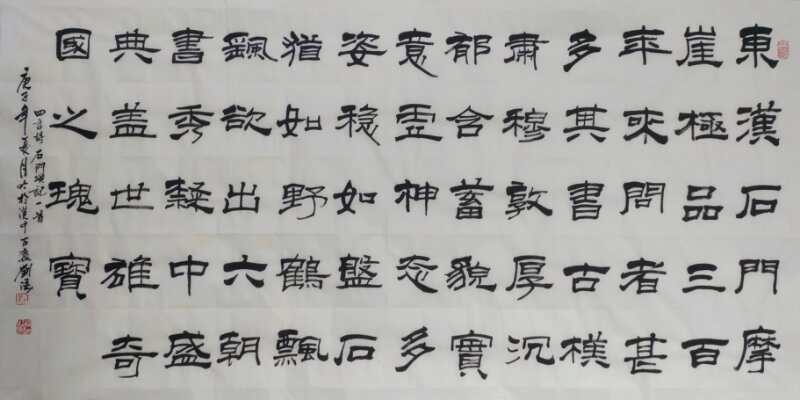 東漢石門摩
崖極品三百
年來問者甚
多其書古樸
肅穆敦厚沉
郁含蓄貌實
意霊神态多
姿稳如盤石
猶如野鶴飄
颻欲出六朝
書秀隸中盛
典盖世雄奇
國之瑰寶
四言詩石門頌記一首
庚子年夏月於漢中劉